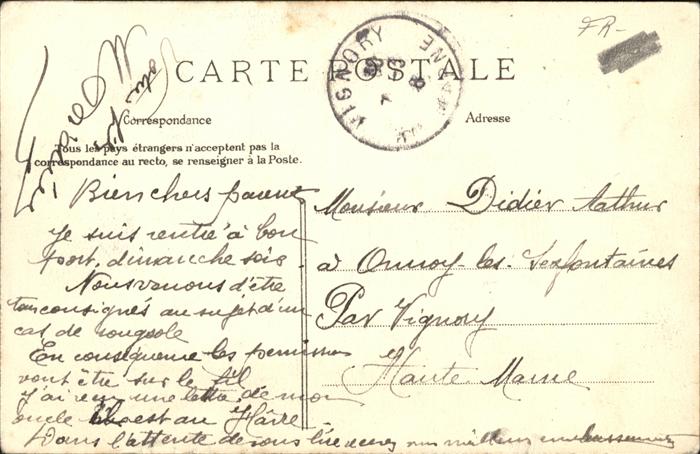 FR-
CARTE POSTALE
VIGNORY
Correspondance
Adresse
Tous les pays étrangers n'acceptent pas la
correspondance au recto, se renseigner à la Poste.
Bien chers parents
Je suis rentré à bon
port, dimanche soir
Nous venons d'être
tous consignés au sujet d'un
cas de rougeole
En conséquence les permissions
vont être sur le fil
J'ai reçu une lettre de mon
oncle est au Hâvre
Dans l'attente de vous lire recevez nos meilleurs embrassements
Marcel
Monsieur Didier Arthur
à Ormoy les Sexfontaines
Par Vignory
Haute Marne